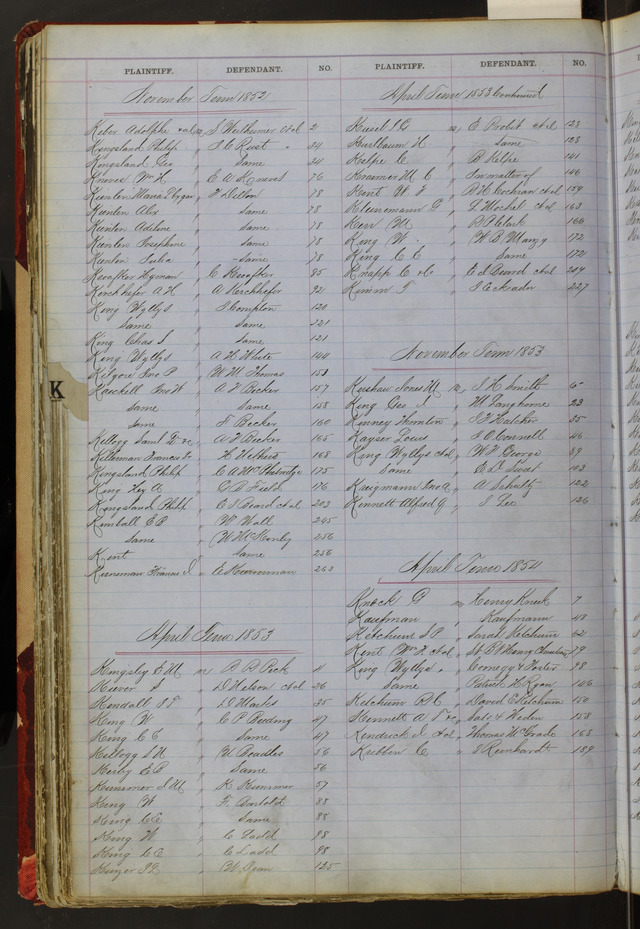 PLAINTIFF. DEFENDANT. NO.
November Term 1852
Keber Adolphe et al vs S Wertheimer et al 2
Kingsland Philip " S C Rust " 24
Kingsland Geo " Same 24
Knaves Wm H " E A Knaves 76
Kunlen Maria " F Dillon 78
Kunlen Alix " Same 78
Kunlen Adeline " Same 78
Kunlen Josephine " Same 78
Kunlen Julia " Same 78
Keraffer Hyman " C Keraffer 85
Kerchhefer A H " A Kerchhefer 92
King Wyllys " S Compton 120
Same " Same 121
King Chas S " Same 121
King Wyllys " A H White 144
Kilgore Jno P " W M Thomas 153
Kaickell Jno W " A F Becker 157
Same " Same 158
Same " F Becker 160
Kellogg Saml " A F Becker 165
Killerman Francis " H Helkers 168
Kingsland Philip " C A 175
King Key A " C B Field 176
Kingsland Philip " E S Beard et al 203
Kimball E B " W Wall 245
Same " 256
Kent " Same 256
Kunneman Francis J " E Kunneman 263
April Term 1853
Kingsley E M vs B B Peck 11
Keever S " D Nelson et al 26
Kendall S F " D Marks 35
King W " C P Budding 47
King C E " Same 47
Kellogg S M " W Boadles 56
Kerley E P " Same 56
Kummer S M " K Kummer 57
King W " F Arnold 88
King C E " Same 88
King W " C Ladd 98
King C E " C Ladd 98
Kinzer " W Dean 125
PLAINTIFF. DEFENDANT. NO.
April Term 1853 Continued
Keisel S G vs E Probit et al 123
Kurlbaum H " Same 128
Kelpe C " B Kelpe 141
Kraemer M C " In matter of 146
Kent W F " B H Cochran et al 159
Kleinemann G " L Mockel et al 163
Kerr W " R P Clark 166
King W " W B 172
King C E " Same 172
Knapp C & Co " E S Beard et al 204
Kimm T " S Eckrader 227
November Term 1853
Kershaw James M vs S H Smith 6
King Geo S " M Langhorne 23
Kinney Thornton " S F Hatcher 35
Kayser Louis " S O Connell 46
King Wyllys et al " W F George 89
Same " E D Sweet 103
Krugmann Jno A " A Schultz 122
Kennett Alfred G " S Leo 126
April Term 1854
Knock G vs Henry Knock 7
Kaufman " Kaufmann 48
Ketchum S P " Sarah Ketchum 62
Kent Wm F et al " St L & Henry 79
King Wyllys " Conegy & Porter 98
Same " Patrick H Ryan 146
Ketchum B C " David E Ketchum 150
Kennett A " Sals & Weden 158
Kendrick J et al " Thomas McGrade 168
Kribben C " S Reinhardt 189
K